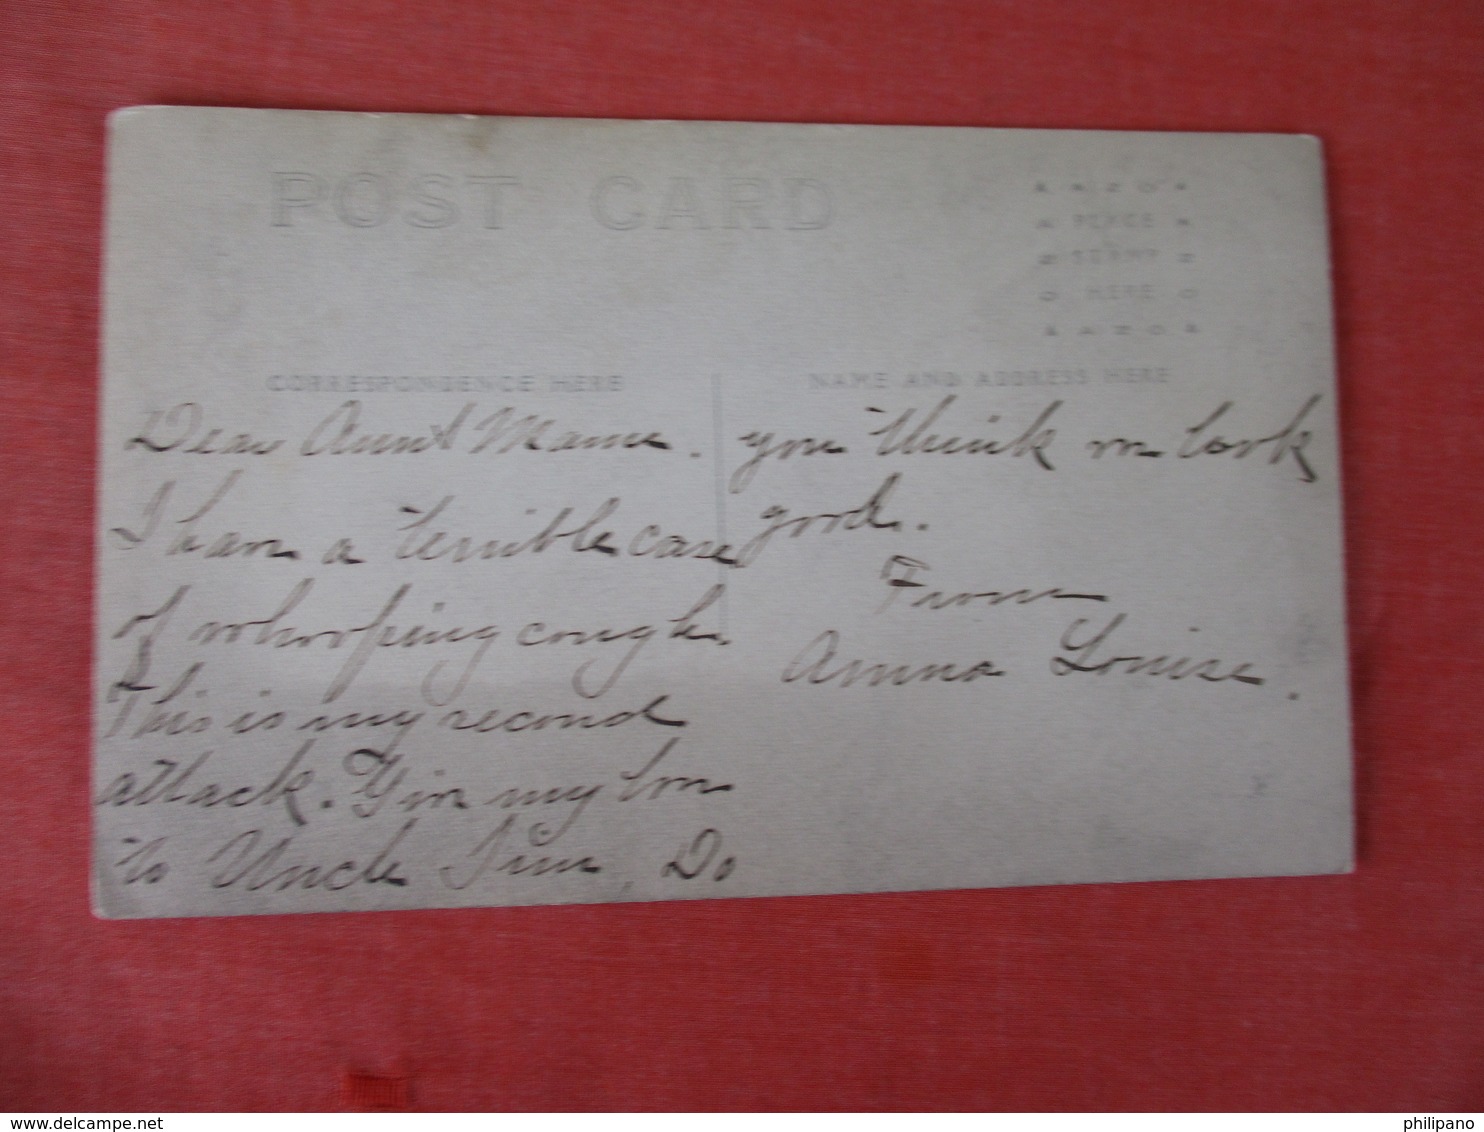 POST CARD
AZO
PLACE
STAMP
HERE
AZO
CORRESPONDENCE HERE
NAME AND ADDRESS HERE
Dear Aunt Mame.
I have a terrible case
of whooping cough.
This is my second
attack. Give my love
to Uncle Jim, Do
you think we look
good.
From
Anna Louise.
www.delcampe.net
philipano